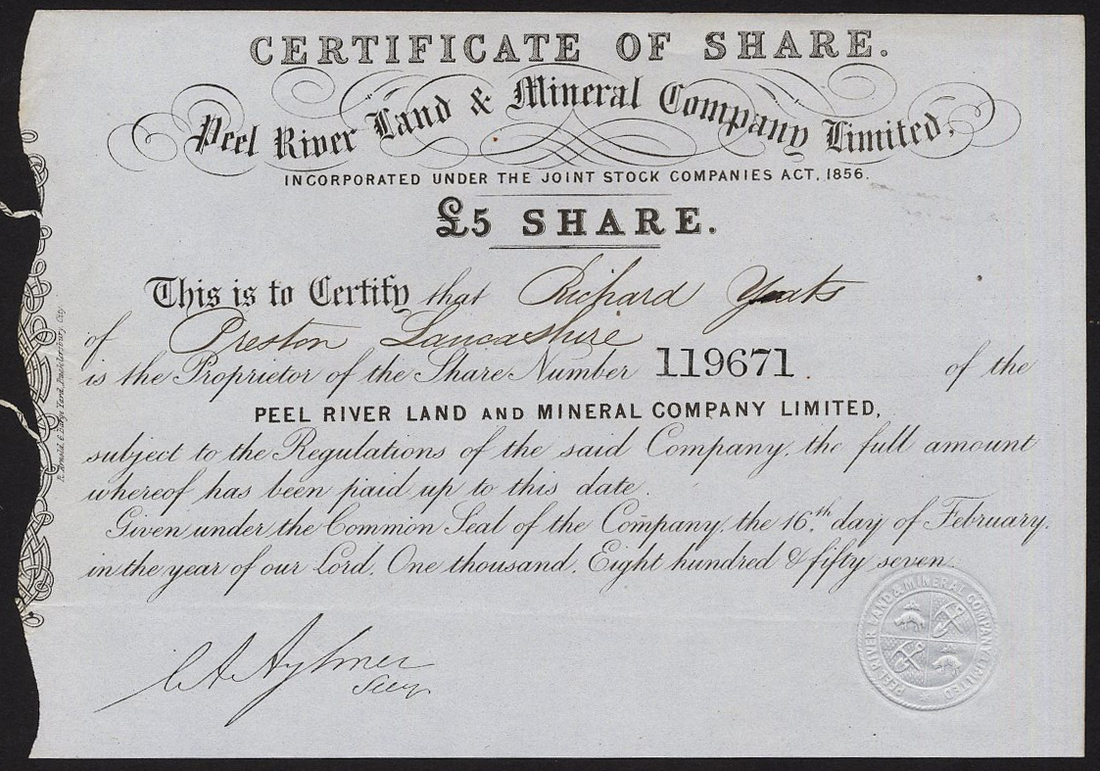 CERTIFICATE OF SHARE.
Peel River Land & Mineral Company Limited,
INCORPORATED UNDER THE JOINT STOCK COMPANIES ACT, 1856.
£5 SHARE.
This is to Certify that Richard Yeats
of Preston Lancashire
is the Proprietor of the Share Number 119671 of the
PEEL RIVER LAND AND MINERAL COMPANY LIMITED,
subject to the Regulations of the said Company, the full amount
whereof has been paid up to this date.
Given under the Common Seal of the Company, the 16th day of February,
in the year of our Lord, One thousand, Eight hundred & fifty seven.
C A Aylmer
Secy
PEEL RIVER LAND & MINERAL COMPANY LIMITED